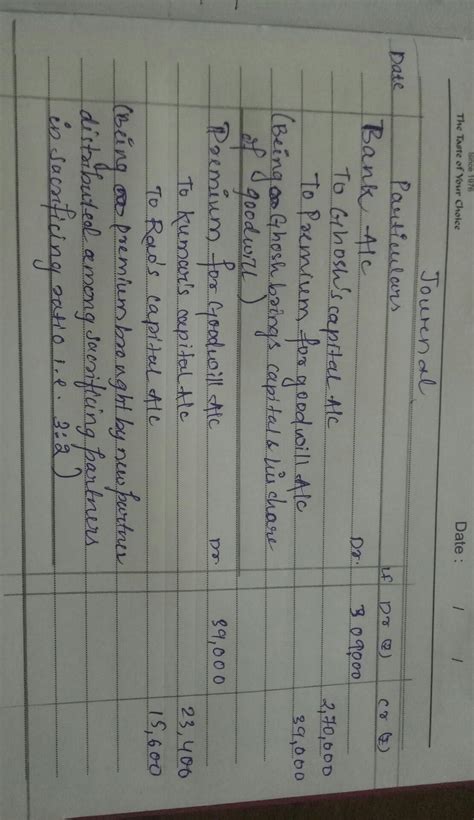 Since 1076
The Taste of Your Choice
Date : / /
Journal
Date Particulars Lf Dr (₹) Cr (₹)
Bank A/c Dr. 309,000
To Ghosh's capital A/c 2,70,000
To Premium for goodwill A/c 39,000
(Being Ghosh brings capital & his share
of goodwill)
Premium for Goodwill A/c Dr. 39,000
To Kumar's capital A/c 23,400
To Rao's capital A/c 15,600
(Being premium brought by new partner
distributed among sacrificing partners
in sacrificing ratio i.e. 3:2)